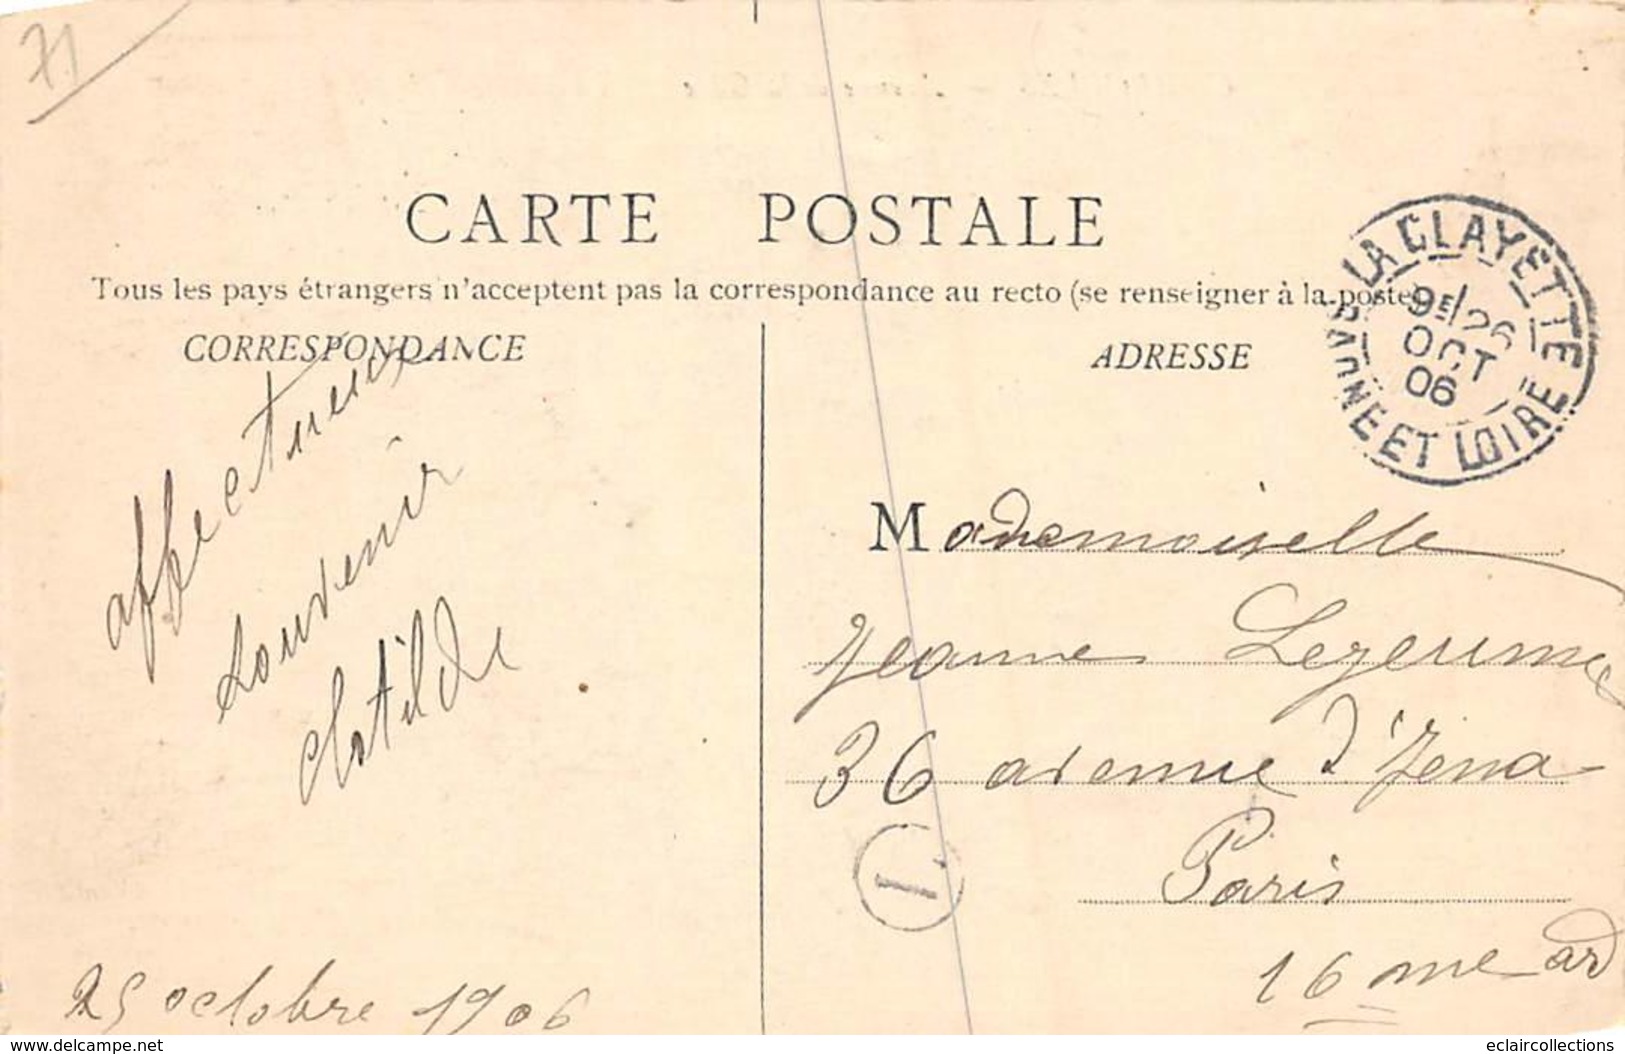 71
CARTE POSTALE
Tous les pays étrangers n'acceptent pas la correspondance au recto (se renseigner à la poste)
CORRESPONDANCE
ADRESSE
LA CLAYETTE
9E/26
OCT
06
SAONE ET LOIRE
affectueux
souvenir
Clotilde
25 octobre 1906
Mademoiselle
Jeanne
36 avenue d'Iéna
Paris
16 me ard
1
www.delcampe.net
eclaircollections